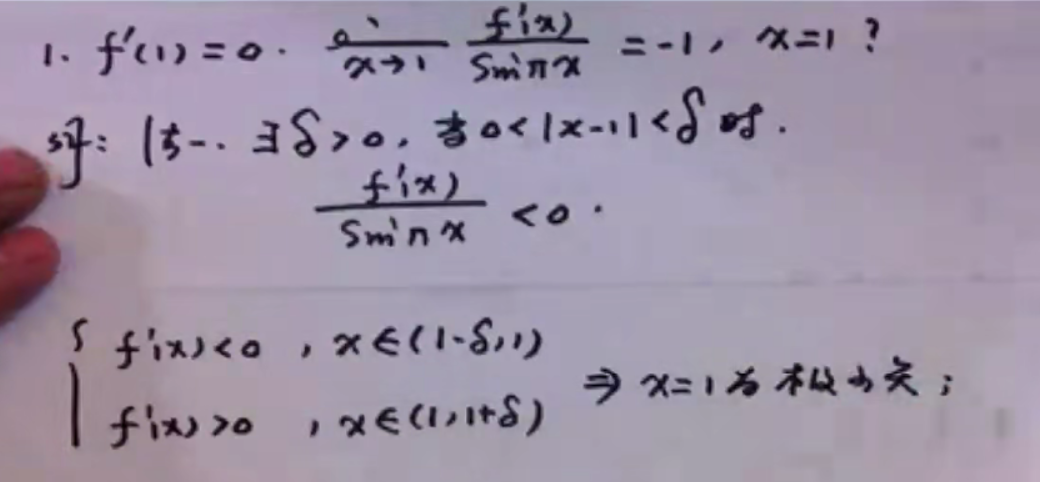 1. f'(1)=0. lim x→1 f'(x)/sinπx = -1, x=1?
解: 1方一. ∃δ>0, 当0<|x-1|<δ时.
f'(x)/sinπx <0.
{ f'(x)<0, x∈(1-δ,1)
f'(x)>0, x∈(1,1+δ) ⇒ x=1为极小点;